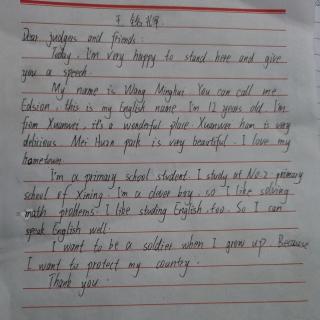 Dear judgers and friends:
Today, I'm very happy to stand here and give
you a speech.
My name is Wang Minghui. You can call me
Edsion, this is my English name. I'm 12 years old. I'm
from Xuanwei, it's a wonderful place. Xuanwei ham is very
delicious. Mei Huan park is very beautiful. I love my
hometown.
I'm a primary school student. I study at No.2 primary
school of Xining. I'm a clever boy, so I like solving
math problems. I like studing English, too. So I can
speak English well.
I want to be a soldier when I grow up. Because
I want to protect my country.
Thank you.